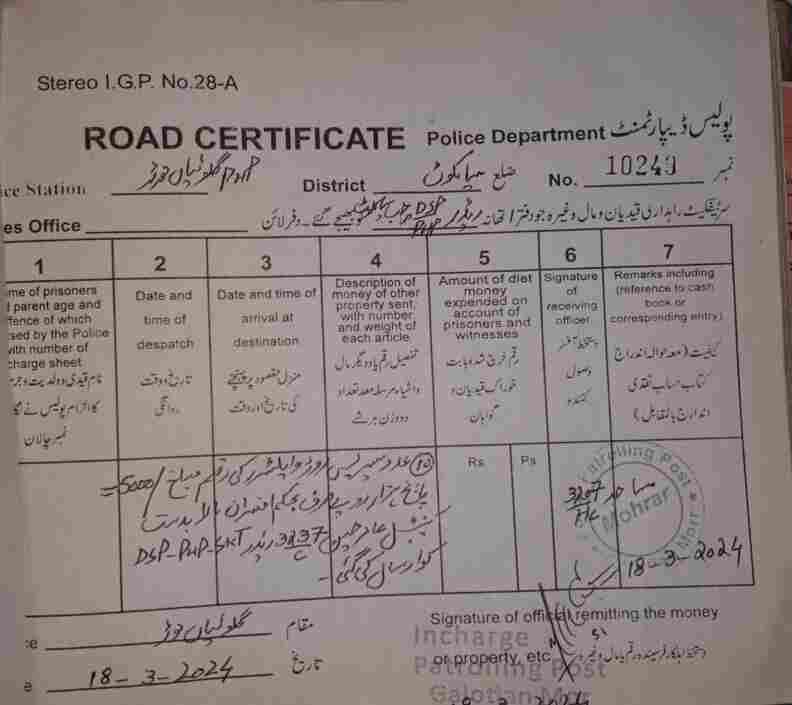 Stereo I.G.P. No.28-A
ROAD CERTIFICATE Police Department پولیس ڈیپارٹمنٹ
ce Station گلوٹیاں موڑ PHP District سیالکوٹ ضلع No. 10249 نمبر
es Office سرٹیفکیٹ راہداری قیدیان و مال وغیرہ جو دفتر / تھانہ ریڈر DSP PHP صاحب سیالکوٹ بھیجے گئے۔ دفتر لائن
1 2 3 4 5 6 7
ame of prisoners
parent age and
ffence of which
sed by the Police
with number of
charge sheet
نام قیدی و ولدیت و جرم
کا الزام پولیس نے لگا
نمبر چالان
Date and
time of
despatch
تاریخ و وقت
روانگی
Date and time of
arrival at
destination
منزل مقصود پر پہنچنے
کی تاریخ اور وقت
Description of
money of other
property sent,
with number
and weight of
each article
تفصیل رقم یا دیگر مال
واشیاء مرسلہ معہ تعداد
و وزن ہر شے
Amount of diet
money
expended on
account of
prisoners and
witnesses
رقم خرچ شدہ بابت
خوراک قیدیان و
گواہان
Signature
of
receiving
officer
دستخط آفیسر
وصول
کنندہ
Remarks including
(reference to cash
book or
corresponding entry)
کیفیت (معہ حوالہ اندراج
کتاب حساب نقدی
اندراج بالمقابل)
Rs Ps
10 عدد کی رقم مبلغ /5000=
پانچ ہزار روپے صرف بحکم افسران بالا بدست
کنسٹیبل 3237/C ریڈر DSP-PHP-SKT
کو ارسال کی گئی۔
3207/HC
Patrolling Post
Mohrar
Morr
18-3-2024
ce گلوٹیاں موڑ مقام
e 18-3-2024 تاریخ
Signature of official remitting the money
or property, etc
Incharge
Patrolling Post
Galotian Mor
18-3-2024